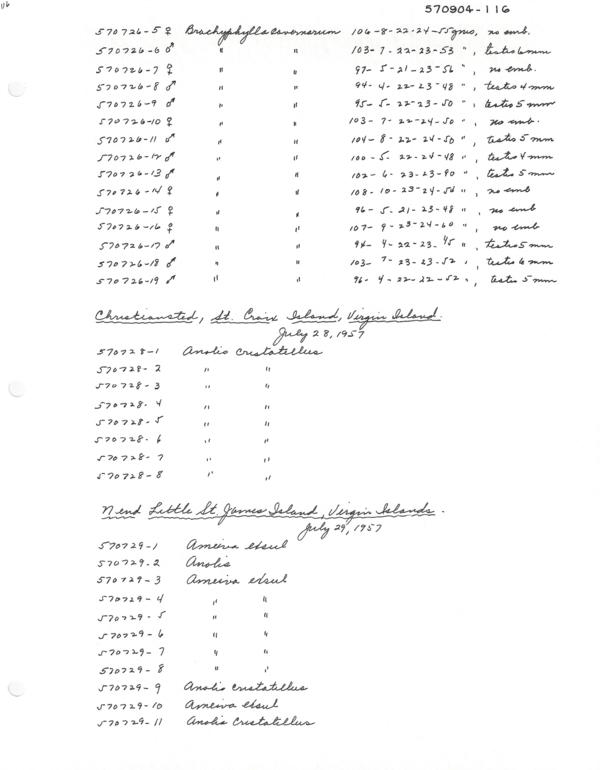 116
570904-116
570726-5 ♀ Brachyphylla cavernarum 106-8-22-24-55 gms, no emb.
570726-6 ♂ " " 103-7-22-23-53 ", testis 6 mm
570726-7 ♀ " " 97-5-21-23-56 ", no emb.
570726-8 ♂ " " 94-4-22-23-48 ", testis 4 mm
570726-9 ♂ " " 95-5-22-23-50 ", testis 5 mm
570726-10 ♀ " " 103-7-22-24-50 ", no emb.
570726-11 ♂ " " 104-8-22-24-50 ", testis 5 mm
570726-12 ♂ " " 100-5-22-24-48 ", testis 4 mm
570726-13 ♂ " " 102-6-23-23-90 ", testis 5 mm
570726-14 ♀ " " 108-10-23-24-54 ", no emb
570726-15 ♀ " " 96-5-21-23-48 ", no emb
570726-16 ♀ " " 107-9-23-24-60 ", no emb
570726-17 ♂ " " 94-4-22-23-45 ", testis 5 mm
570726-18 ♂ " " 103-7-23-23-52 ", testis 6 mm
570726-19 ♂ " " 96-4-22-22-52 ", testis 5 mm
Christiansted, St. Croix Island, Virgin Island.
July 28, 1957
570728-1 Anolis cristatellus
570728-2 " "
570728-3 " "
570728-4 " "
570728-5 " "
570728-6 " "
570728-7 " "
570728-8 " "
N end Little St. James Island, Virgin Islands.
July 29, 1957
570729-1 Ameiva exsul
570729-2 Anolis
570729-3 Ameiva exsul
570729-4 " "
570729-5 " "
570729-6 " "
570729-7 " "
570729-8 " "
570729-9 Anolis cristatellus
570729-10 Ameiva exsul
570729-11 Anolis cristatellus